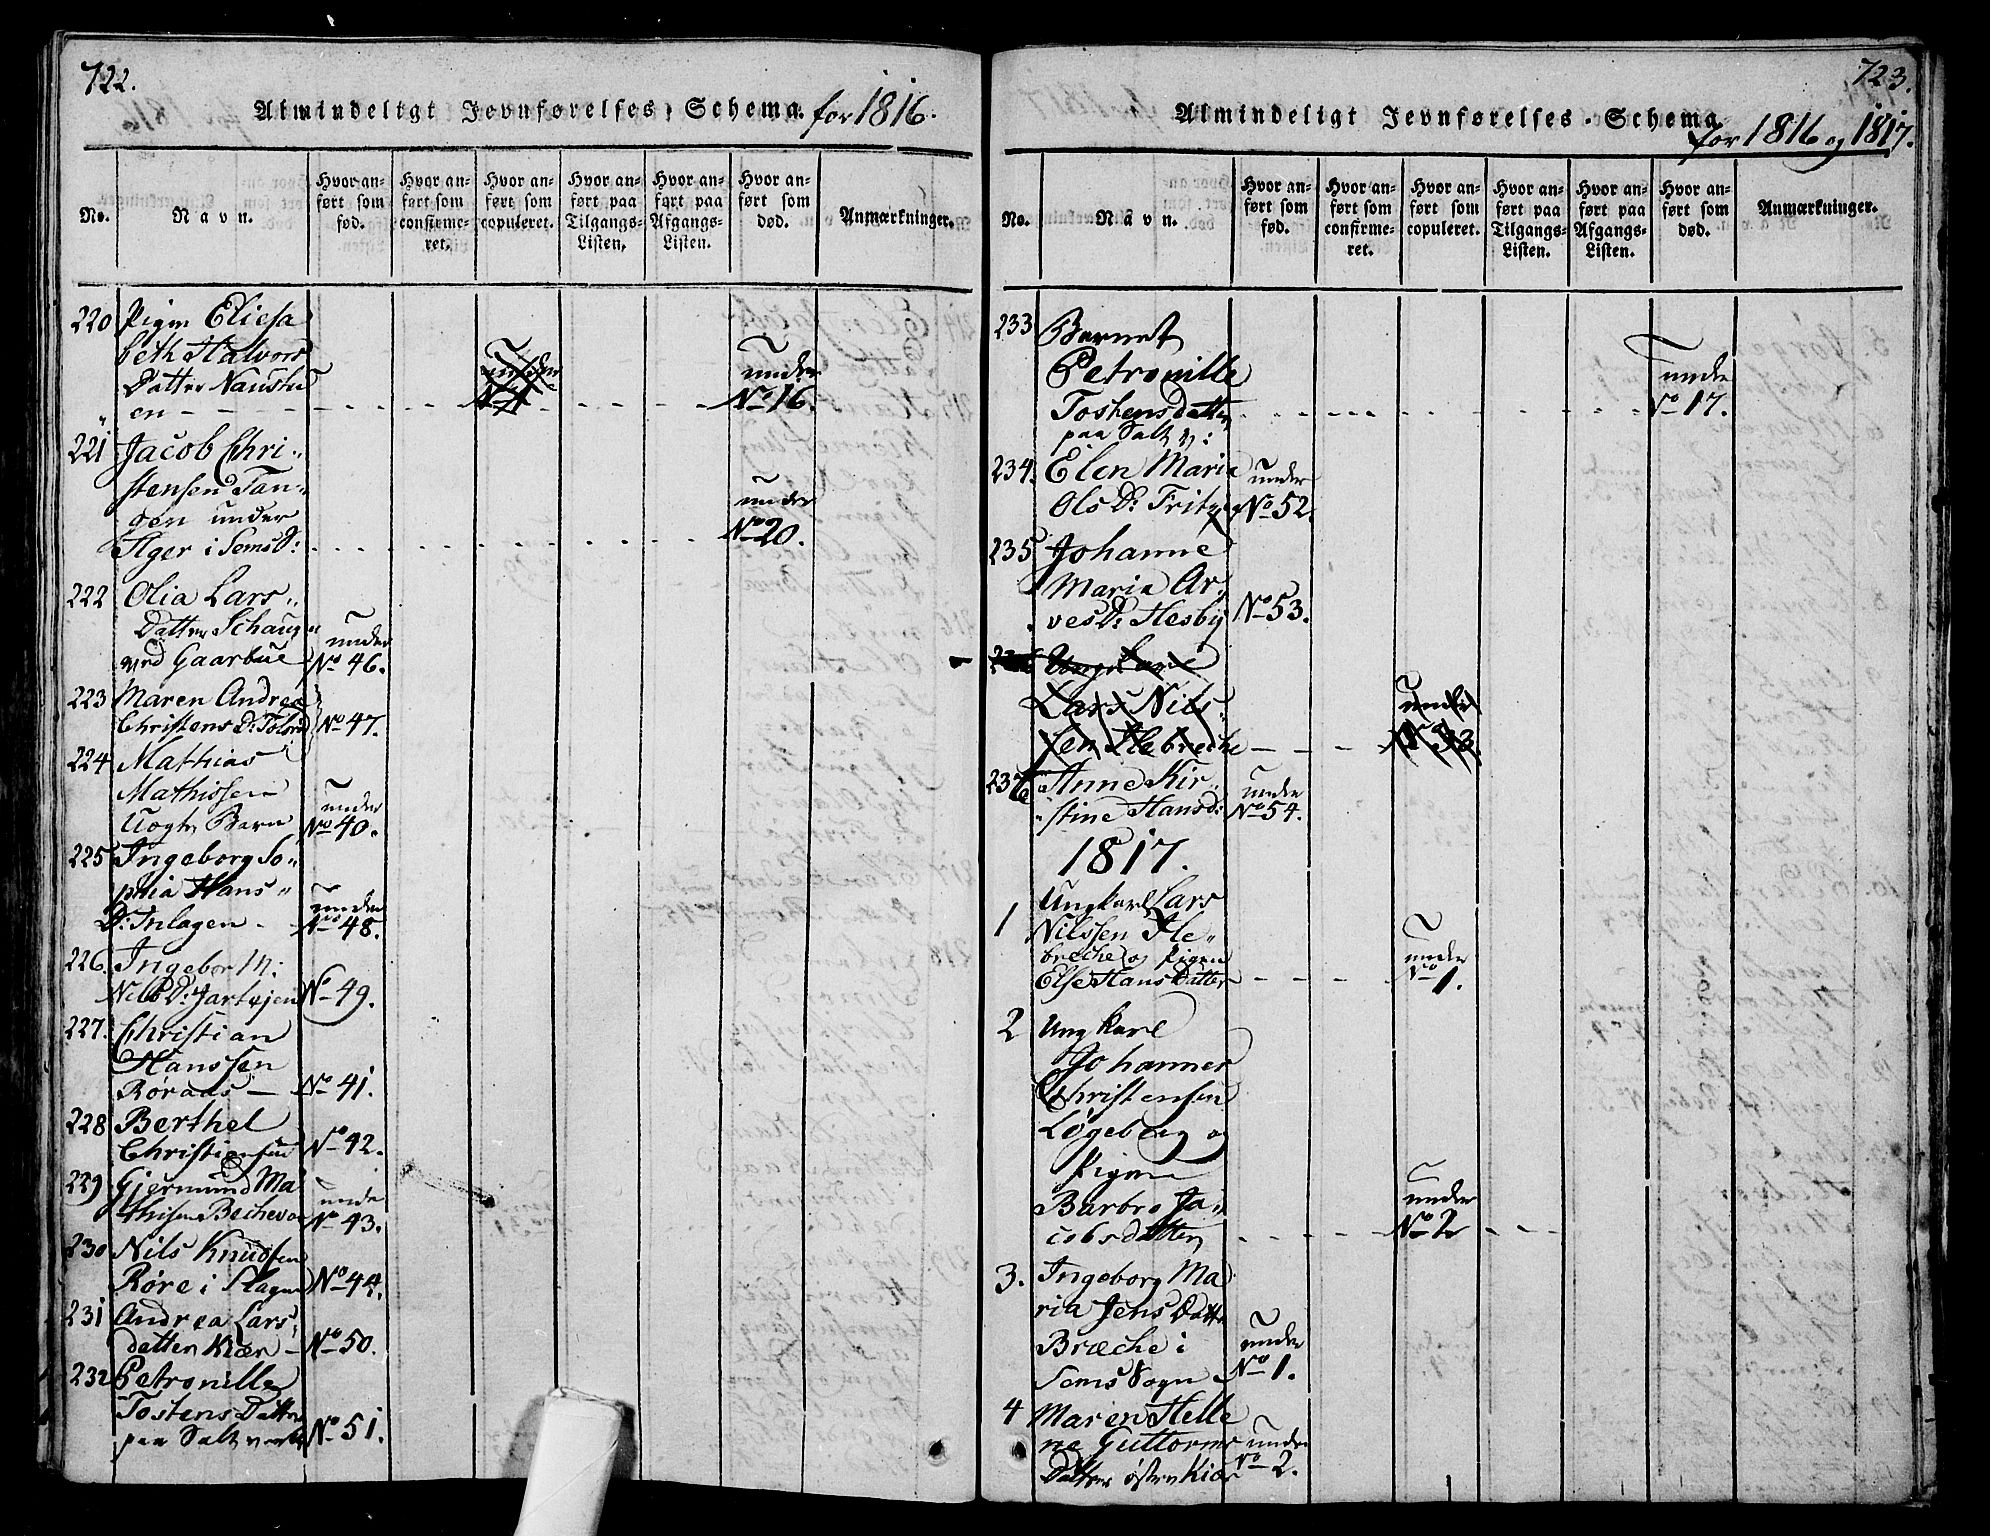 722.
Almindeligt Jevnførelses-Schema. for 1816.
No.
Navn.
Hvor anført som fød.
Hvor anført som confirmeret.
Hvor anført som copuleret.
Hvor anført paa Tilgangs-Listen.
Hvor anført paa Afgangs-Listen.
Hvor anført som død.
Anmærkninger.
220 Pigen Eliesa
beth Halvors
Datter under
en - No 16.
221 Jacob Chri-
stensen Tan-
gen under under
Ager i Sems S: No 20.
222 Olia Lars-
Datter Schaug under
ved Gaarbue No 46.
223 Maren Andrea
Christens D: No 47.
224 Mathias
Mathissen under
Vogts Barn No 40.
225 Ingeborg So-
phia Hans- under
D: Inlagen - No 48.
226. Ingebor M:
Nils D: No 49.
227. Christian
Hanssen
Røraas - No 41.
228 Berthel
Christiansen No 42.
229 Gjermund Ma under
thisen No 43.
230 Nils Knudsen
Røre i Slagen No 44.
231 Andrea Lars-
datter Kiær - No 50.
232 Petronille
Tostens Datter
paa Saltverket No 51.
723.
Almindeligt Jevnførelses-Schema
for 1816 og 1817.
No.
Navn.
Hvor anført som fød.
Hvor anført som confirmeret.
Hvor anført som copuleret.
Hvor anført paa Tilgangs-Listen.
Hvor anført paa Afgangs-Listen.
Hvor anført som død.
Anmærkninger.
233 Barnet
Petronille under
Tostensdatter No 17.
paa Saltv:
234. Elen Maria under
Ols D: No 52.
235 Johanne
Maria Ar-
ves D: Hesby No 53.
Ungkarl
Lars Nils- under
sen Flebreche
236 Anne Kir- under
stine Hansd: No 54.
1817.
1 Ungkarl Lars
Nilssen Fle-
breche og Pigen under
Else Hans Datter No 1.
2 Ungkarl
Johannes
Christensen
Løgeberg og
Pigen
Barbro Ja- under
cobsdatter No 2
3. Ingeborg Ma
ria Jens Datter
Bræche i under
Sems Sogn No 1.
4 Maren Helle
ne Guttorms under
Datter østen Kiær No 2.